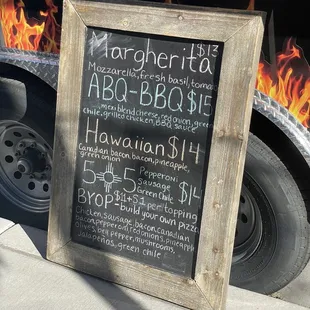 Margherita $13
Mozzarella, fresh basil, tomato
ABQ-BBQ $15
mexi blend cheese, red onion, green
chile, grilled chicken, BBQ sauce
Hawaiian $14
Canadian bacon, bacon, pineapple,
green onion
5 5 Pepperoni
Sausage $14
Green Chile
BYOP $11 + $1 per topping
-build your own pizza
Chicken, sausage, bacon, canadian
bacon, pepperoni, red onions, pineapple
olives, bell pepper, mushrooms,
Jalapeños, green chile